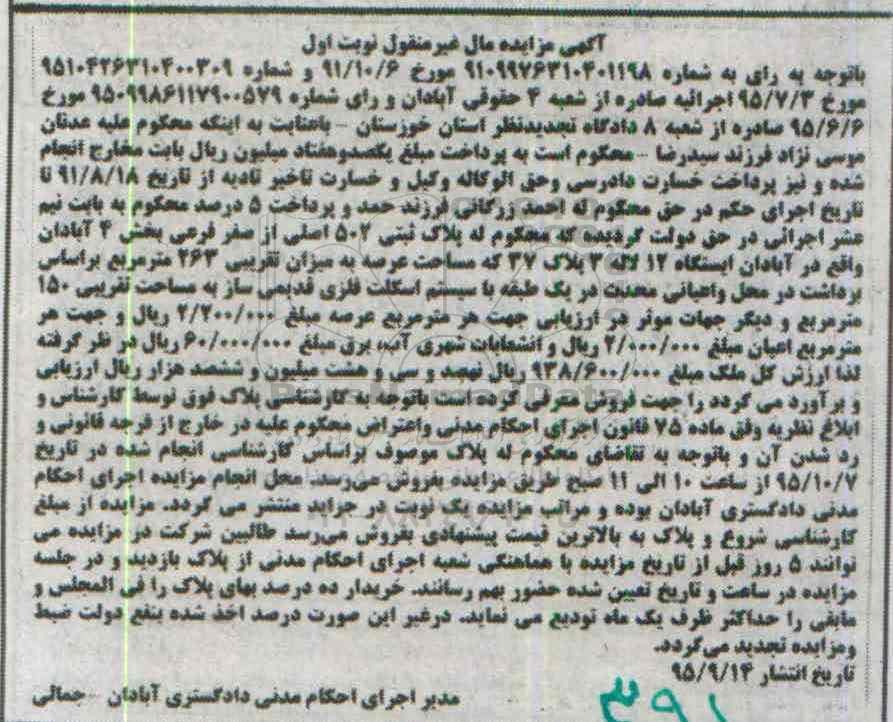 آگهی مزایده مال غیرمنقول نوبت اول
باتوجه به رای به شماره ۹۱۰۹۹۷۶۳۱۰۴۰۱۱۹۸ مورخ ۹۱/۱۰/۶ و شماره ۹۵۱۰۴۲۶۳۱۰۴۰۰۳۰۹
مورخ ۹۵/۷/۳ اجرائیه صادره از شعبه ۴ حقوقی آبادان و رای شماره ۹۵۰۹۹۸۶۱۱۷۹۰۰۵۷۹ مورخ
۹۵/۶/۶ صادره از شعبه ۸ دادگاه تجدیدنظر استان خوزستان – باعنایت به اینکه محکوم علیه عدنان
موسی نژاد فرزند سیدرضا – محکوم است به پرداخت مبلغ یکصدوهفتاد میلیون ریال بابت مخارج انجام
شده و نیز پرداخت خسارت دادرسی وحق الوکاله وکیل و خسارت تاخیر تادیه از تاریخ ۹۱/۸/۱۸ تا
تاریخ اجرای حکم در حق محکوم له احمد زرگانی فرزند حمد و پرداخت ۵ درصد محکوم به بابت نیم
عشر اجرائی در حق دولت گردیده که محکوم له پلاک ثبتی ۵۰۲ اصلی از سفر فرعی بخش ۴ آبادان
واقع در آبادان ایستگاه ۱۲ لاله ۳ پلاک ۳۷ که مساحت عرصه به میزان تقریبی ۲۶۳ مترمربع براساس
برداشت در محل واعیانی محدث در یک طبقه با سیستم اسکلت فلزی قدیمی ساز به مساحت تقریبی ۱۵۰
مترمربع و دیگر جهات موثر در ارزیابی جهت هر مترمربع عرصه مبلغ ۲/۲۰۰/۰۰۰ ریال و جهت هر
مترمربع اعیان مبلغ ۲/۰۰۰/۰۰۰ ریال و انشعابات شهری آب، برق مبلغ ۶۰/۰۰۰/۰۰۰ ریال در نظر گرفته
لذا ارزش کل ملک مبلغ ۹۳۸/۶۰۰/۰۰۰ ریال نهصد و سی و هشت میلیون و ششصد هزار ریال ارزیابی
و برآورد می گردد را جهت فروش معرفی کرده است باتوجه به کارشناسی پلاک فوق توسط کارشناس و
ابلاغ نظریه وفق ماده ۷۵ قانون اجرای احکام مدنی واعتراض محکوم علیه در خارج از فرجه قانونی و
رد شدن آن و باتوجه به تقاضای محکوم له پلاک موصوف براساس کارشناسی انجام شده در تاریخ
۹۵/۱۰/۷ از ساعت ۱۰ الی ۱۱ صبح طریق مزایده بفروش می‌رسد. محل انجام مزایده اجرای احکام
مدنی دادگستری آبادان بوده و مراتب مزایده یک نوبت در جراید منتشر می گردد. مزایده از مبلغ
کارشناسی شروع و پلاک به بالاترین قیمت پیشنهادی بفروش می‌رسد طالبین شرکت در مزایده می
توانند ۵ روز قبل از تاریخ مزایده با هماهنگی شعبه اجرای احکام مدنی از پلاک بازدید و در جلسه
مزایده در ساعت و تاریخ تعیین شده حضور بهم رسانند. خریدار ده درصد بهای پلاک را فی المجلس و
مابقی را حداکثر ظرف یک ماه تودیع می نماید. درغیر این صورت درصد اخذ شده بنفع دولت ضبط
ومزایده تجدید می‌گردد.
تاریخ انتشار ۹۵/۹/۱۴
مدیر اجرای احکام مدنی دادگستری آبادان – جمالی